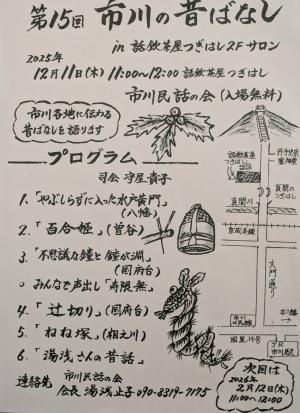 第15回 市川の昔ばなし
in 話飲茶屋つぎはし2Fサロン
2025年
12月11日(木) 11:00〜12:00 話飲茶屋つぎはし
市川民話の会(入場無料)
市川各地に伝わる
昔ばなしを語ります
プログラム
司会 守屋貴子
1.「やぶしらずに入った水戸黄門」
(八幡)
2.「百合姫」(曽谷)
3.「不思議な鐘と鐘が淵」
(国府台)
○ みんなで声出し「寿限無」
4.「辻切り」(国府台)
5.「ねね塚」(相之川)
6.「湯浅さんの昔話」
連絡先 市川民話の会
会長 湯浅止子 090-8319-7175
話飲茶屋
つぎはし
手児奈
霊神堂
真間の
つぎはし
真間川
京成本線
大門通り
市川
市民談
国道14号
JR
市川駅
次回は
2026年
2月12日(木)
11:00〜12:00